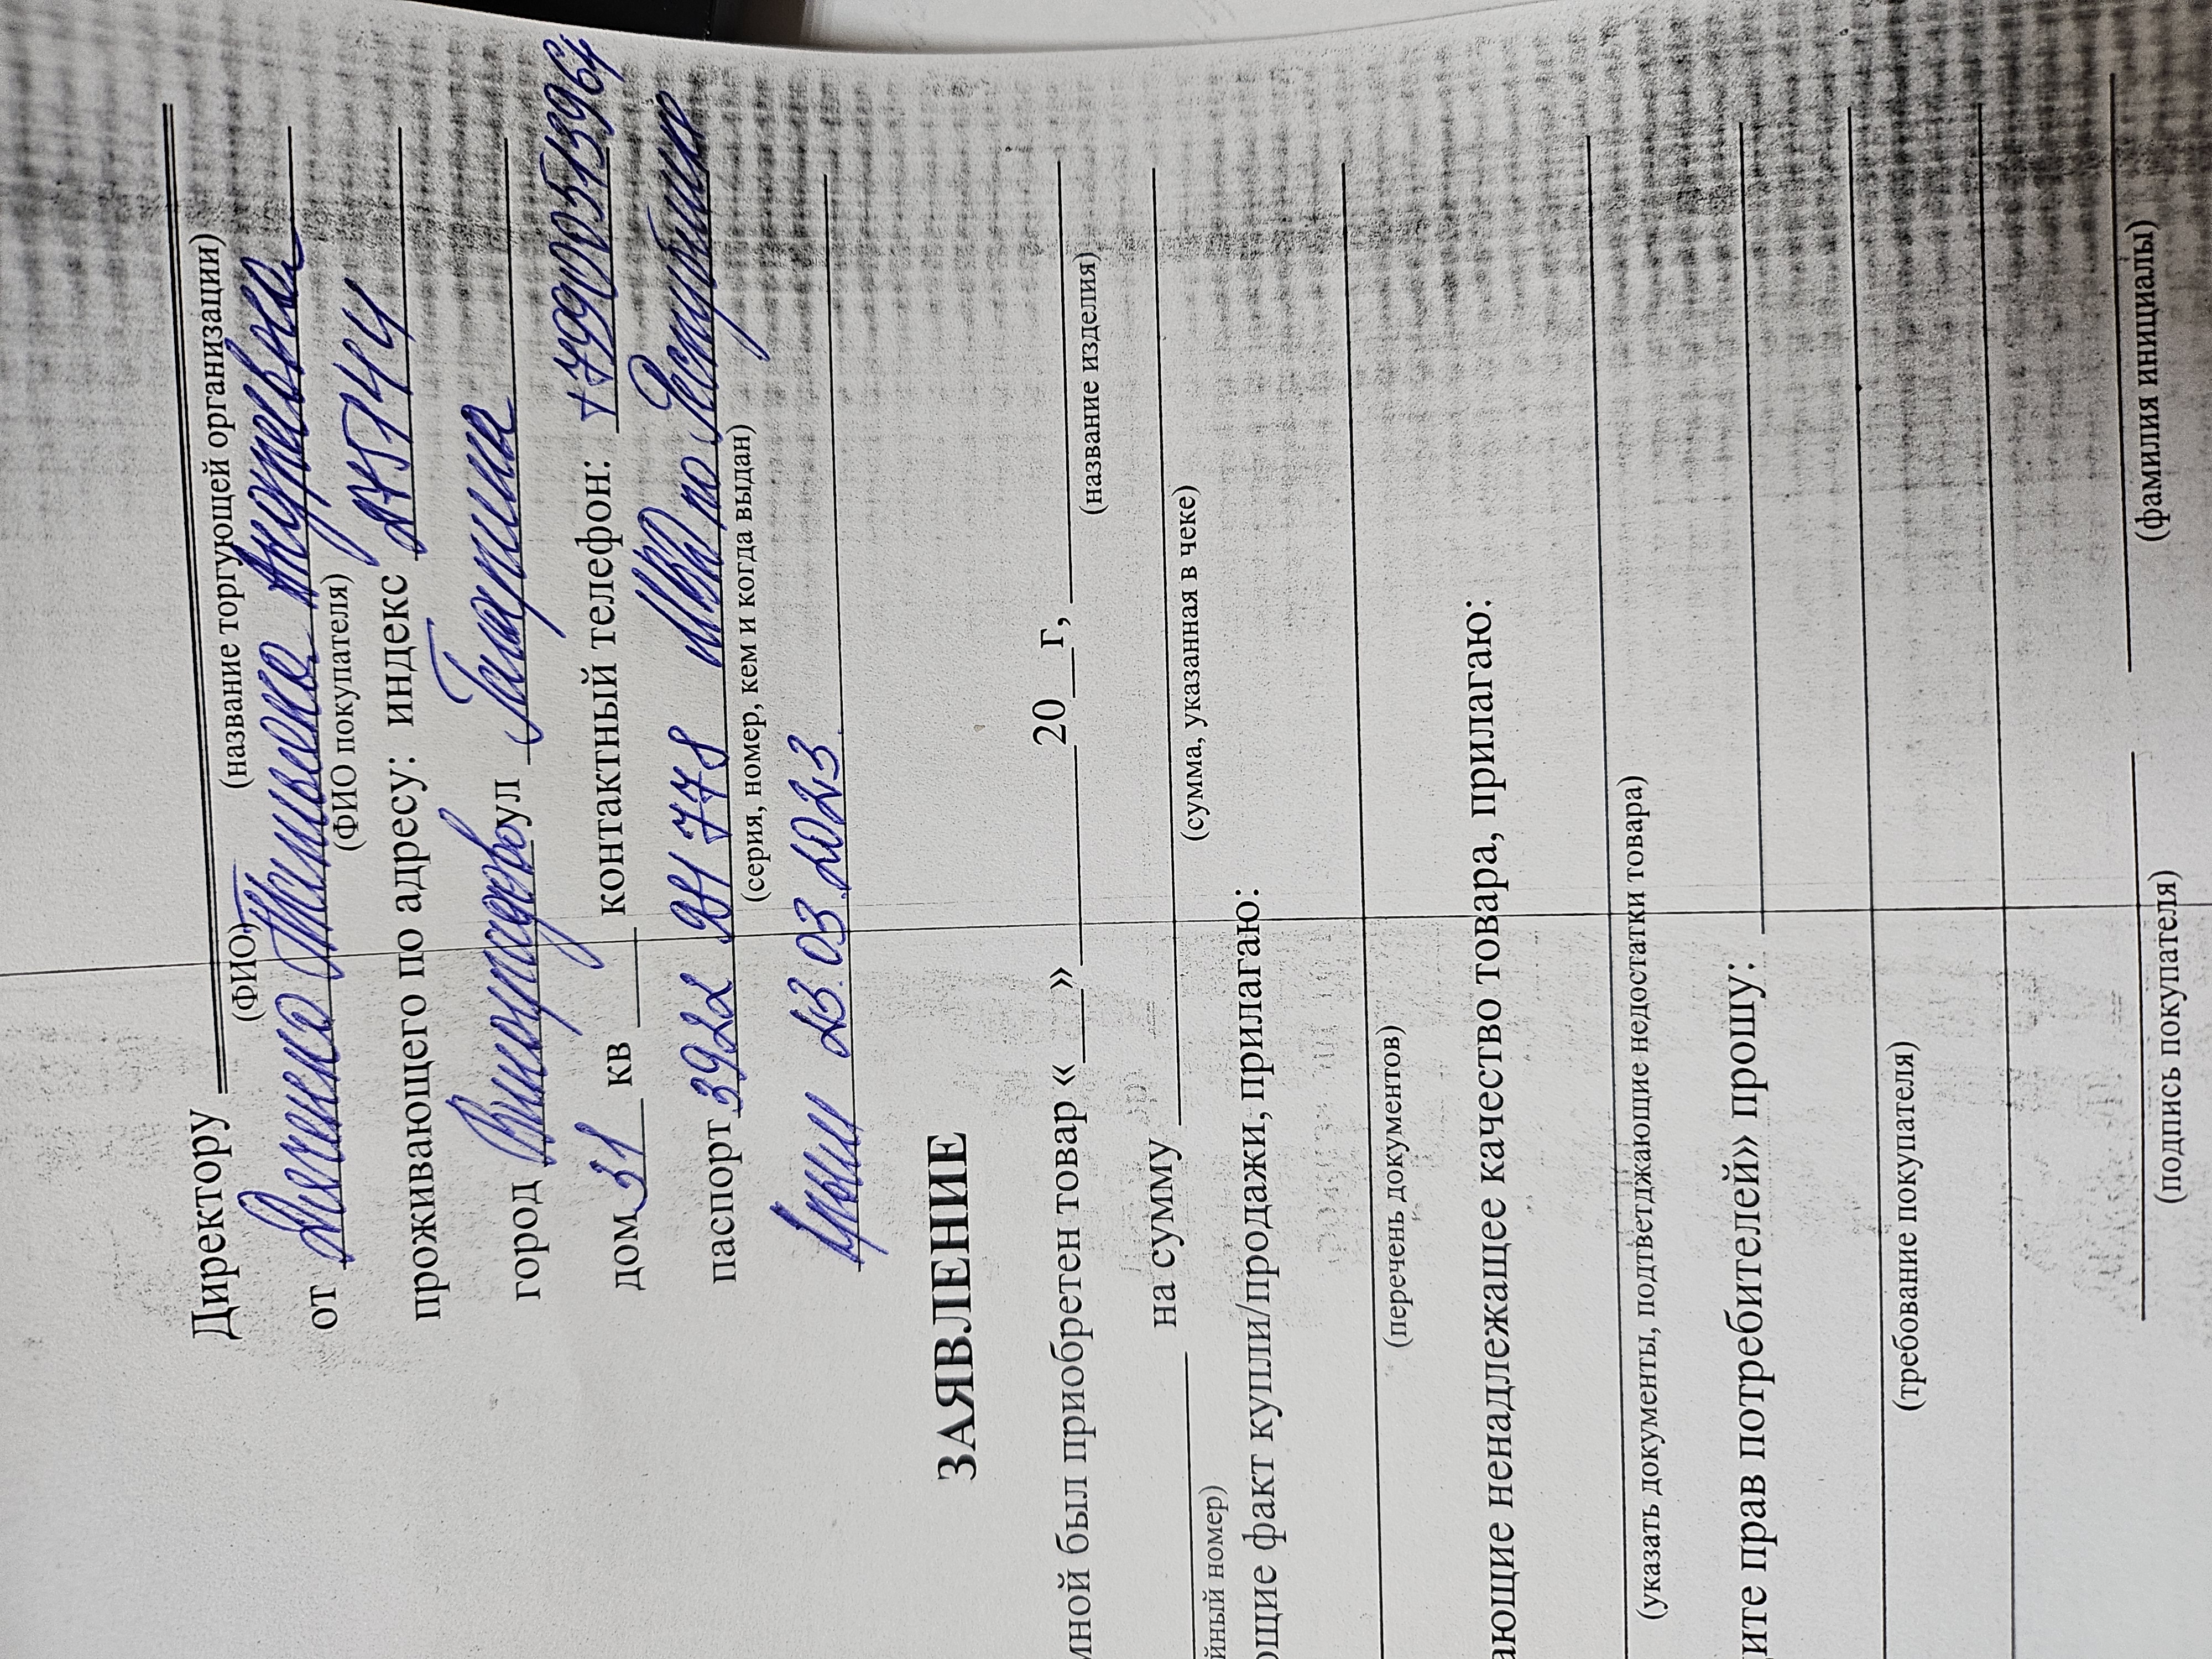 Директору
(ФИО) (название торгующей организации)
от Дяченко Татьяна Андреевна
(ФИО покупателя)
проживающего по адресу: индекс
город Виноградов ул Гагарина
дом 31 кв контактный телефон:
паспорт 3922 МВД по Республике
(серия, номер, кем и когда выдан)
Крым 23.03.2023
ЗАЯВЛЕНИЕ
мной был приобретен товар «___»________20__г, ________
(название изделия)
на сумму
йный номер) (сумма, указанная в чеке)
ющие факт купли/продажи, прилагаю:
(перечень документов)
ающие ненадлежащее качество товара, прилагаю:
(указать документы, подтветджающие недостатки товара)
ите прав потребителей» прошу:
(требование покупателя)
(подпись покупателя) (фамилия инициалы)